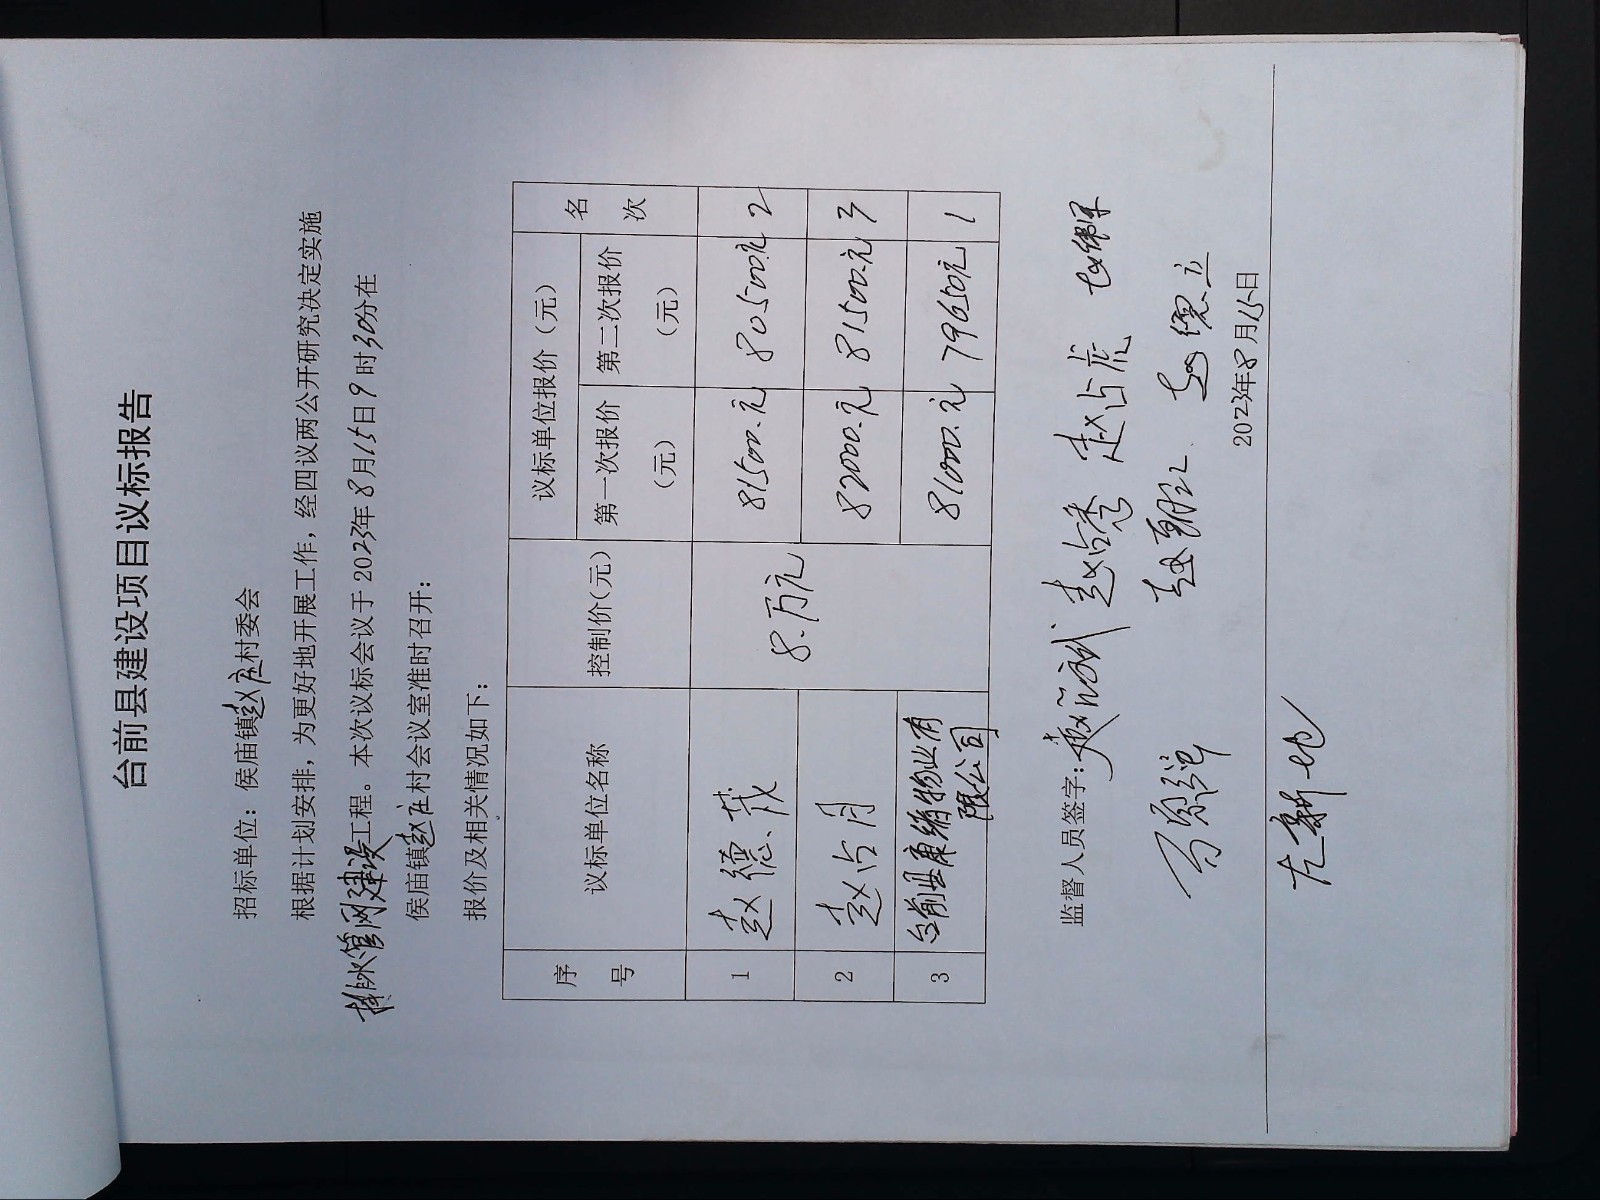 台前县建设项目议标报告
招标单位：侯庙镇赵庄村委会
根据计划安排，为更好地开展工作，经四议两公开研究决定实施
排水管网建设工程。本次议标会议于2023年8月15日9时30分在
侯庙镇赵庄村会议室准时召开：
报价及相关情况如下：
序号 议标单位名称 控制价(元) 议标单位报价(元) 名次
第一次报价(元) 第二次报价(元)
1 赵德 8.万元 81500.元 80500.元 2
2 赵占月 82000.元 81500.元 3
3 台前县康 物业有限公司 81000.元 79650元 1
监督人员签字： 赵占秀 赵占虎
赵朝 赵德立
2023年8月15日